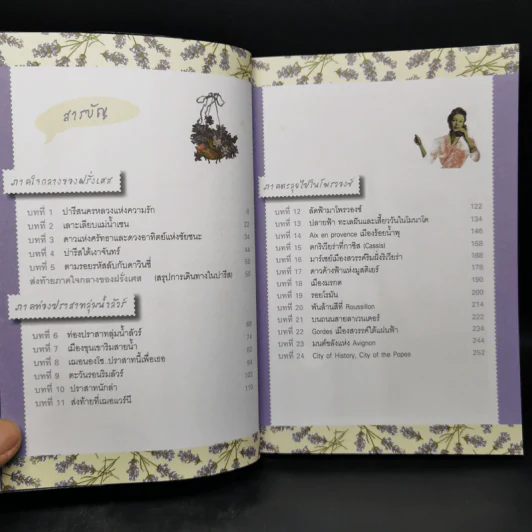 สารบัญ
ภาคใจกลางของฝรั่งเศส
บทที่ 1 ปารีสนครหลวงแห่งความรัก
บทที่ 2 เลาะเลียบแม่น้ำเซน 22
บทที่ 3 ดาวแห่งศรัทธาและดวงอาทิตย์แห่งชัยชนะ 34
บทที่ 4 ปารีสใต้เงาจันทร์
บทที่ 5 ตามรอยรหัสลับกับดาวินชี
ส่งท้ายภาคใจกลางของฝรั่งเศส (สรุปการเดินทางในปารีส)
ภาคท่องปราสาทลุ่มน้ำลัวร์
บทที่ 6 ท่องปราสาทลุ่มน้ำลัวร์
บทที่ 7 เมืองขุนเขาริมสายน้ำ 74
บทที่ 8 เฌอนองโซ..ปราสาทนี้เพื่อเธอ
บทที่ 9 ตะวันรอนริมลัวร์ 102
บทที่ 10 ปราสาทนักล่า
บทที่ 11 ส่งท้ายที่เฌอแวร์นี
ภาคตะลุยใต้ในโพรวองซ์
บทที่ 12 ลัดฟ้ามาโพรวองซ์ 122
บทที่ 13 ปลายฟ้า ทะเลฝันและเสี้ยววันในโมนาโค 134
บทที่ 14 Aix en provence เมืองร้อยน้ำพุ 146
บทที่ 15 ตกริเวียร่าที่กาซิส (Cassis) 158
บทที่ 16 มาร์เซย์เมืองสวรรค์ริมฝั่งริเวียร่า 168
บทที่ 17 ดาวค้างฟ้าแห่งมูสติเยร์
บทที่ 18 เมืองมรกต
บทที่ 19 รอยโรมัน 200
บทที่ 20 พันล้านสีที่ Roussillon 214
บทที่ 21 บนถนนสายลาเวนเดอร์ 222
บทที่ 22 Gordes เมืองสวรรค์ใต้แผ่นฟ้า
บทที่ 23 มนต์ขลังแห่ง Avignon 244
บทที่ 24 City of History, City of the Popes 252